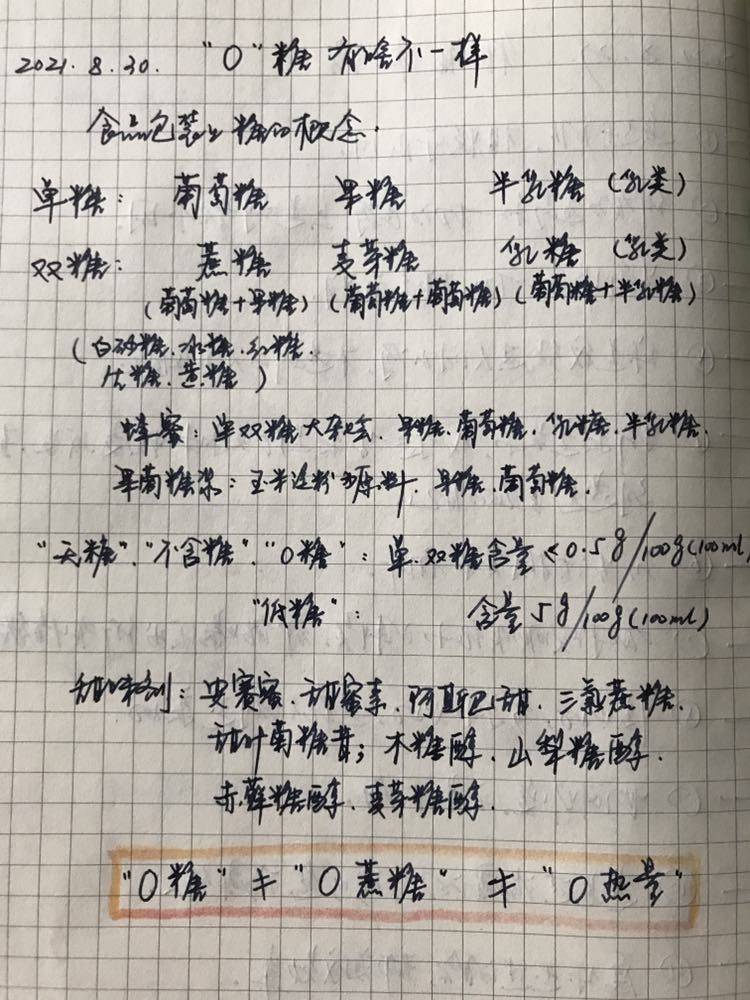 2021.8.30. "0"糖有啥不一样
食品包装上糖的概念.
单糖: 葡萄糖 果糖 半乳糖(乳类)
双糖: 蔗糖 麦芽糖 乳糖(乳类)
(葡萄糖+果糖)(葡萄糖+葡萄糖)(葡萄糖+半乳糖)
(白砂糖.冰糖.红糖.
糖.黄糖)
蜂蜜: 单双糖大杂烩.果糖.葡萄糖.乳糖.半乳糖.
果葡糖浆: 玉米淀粉为原料.果糖.葡萄糖.
"无糖"."不含糖"."0糖": 单.双糖含量≤0.5g/100g(100ml)
"低糖": 含量5g/100g(100ml)
甜味剂: 安赛蜜.甜蜜素.阿斯巴甜.三氯蔗糖.
甜叶菊糖苷; 木糖醇.山梨糖醇.
赤藓糖醇.麦芽糖醇.
"0糖"≠"0蔗糖"≠"0热量"